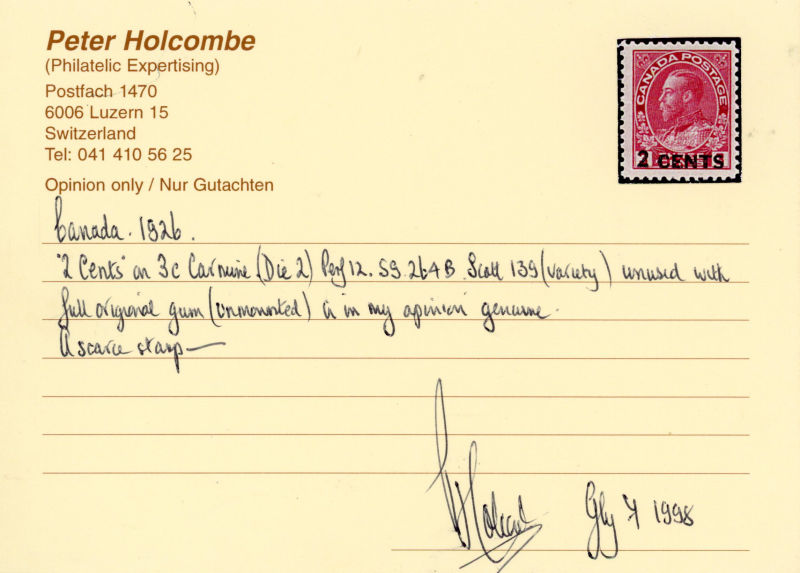 Peter Holcombe
(Philatelic Expertising)
Postfach 1470
6006 Luzern 15
Switzerland
Tel: 041 410 56 25
Opinion only / Nur Gutachten
CANADA POSTAGE
2 CENTS
Canada. 1926.
"2 Cents" on 3c Carmine (Die 2) Perf 12. SG. 264B. Scott 139 (variety) unused with
full original gum (unmounted) is in my opinion genuine.
A scarce stamp—
Holcombe July 7 1998